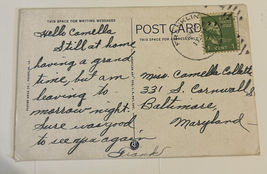 THIS SPACE FOR WRITING MESSAGES
POST CARD
Hello Camella
Still at home
having a grand
time, but am
leaving to
morrow night.
Sure was good
to see you again
Frank
FRANKLIN
1 CENT 1
Miss Camella Collette
331 S. Cornwall S
Baltimore,
Maryland